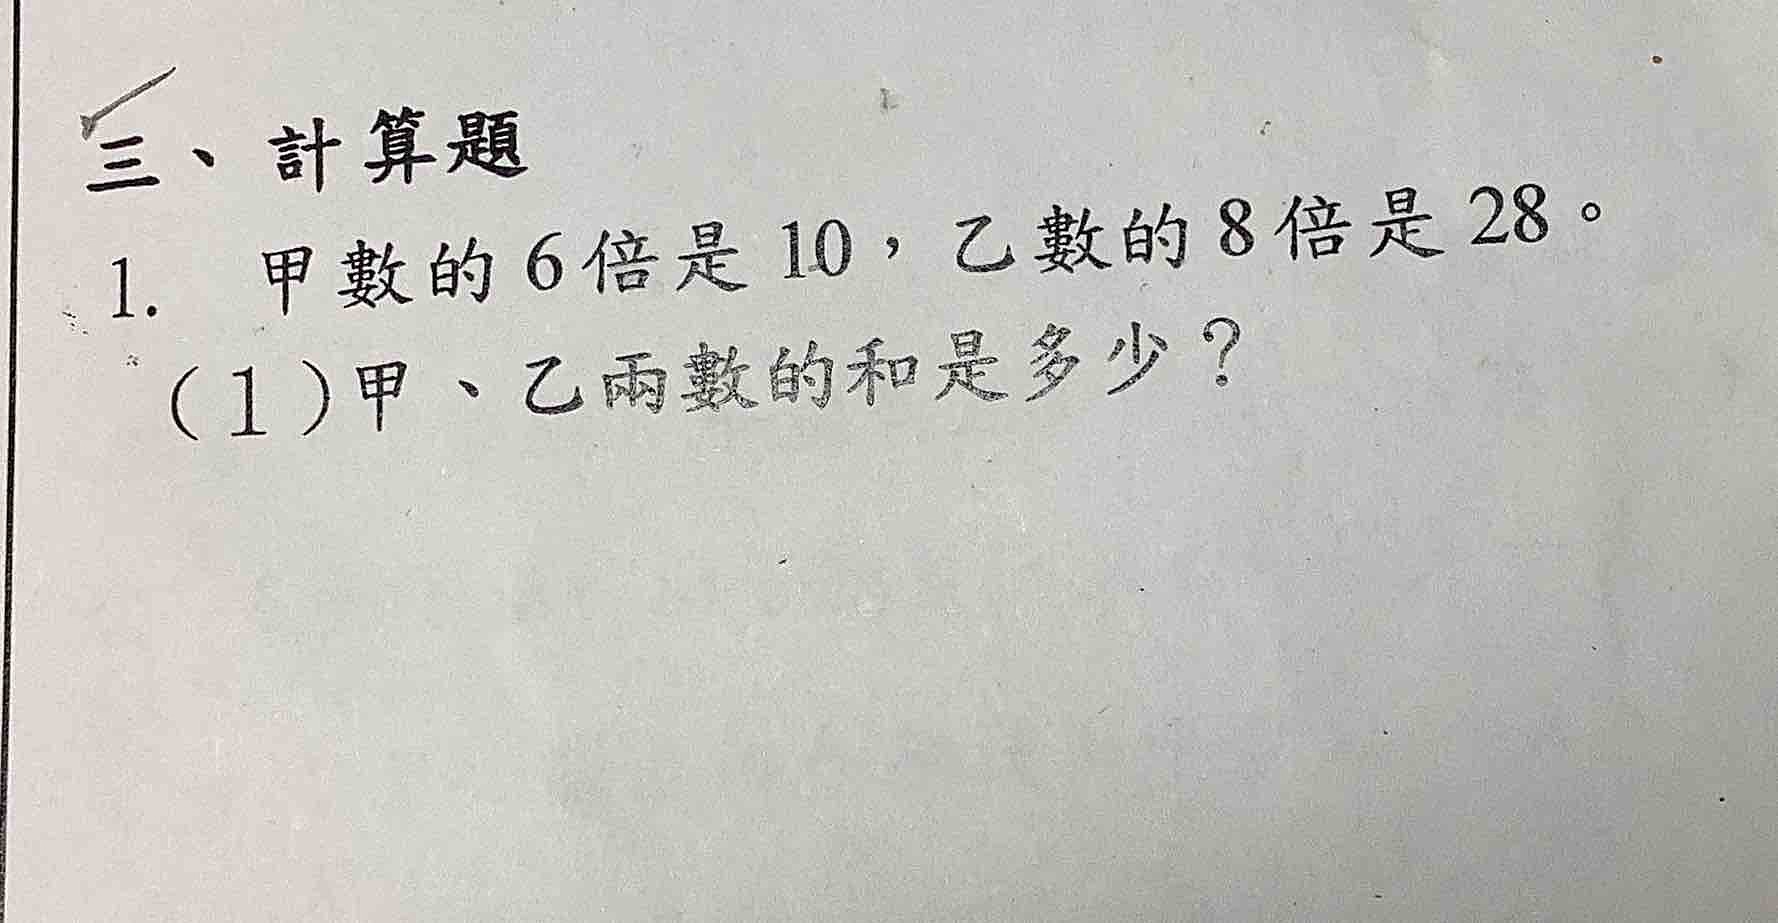 三、計算題
1. 甲數的6倍是10，乙數的8倍是28。
(1)甲、乙兩數的和是多少？